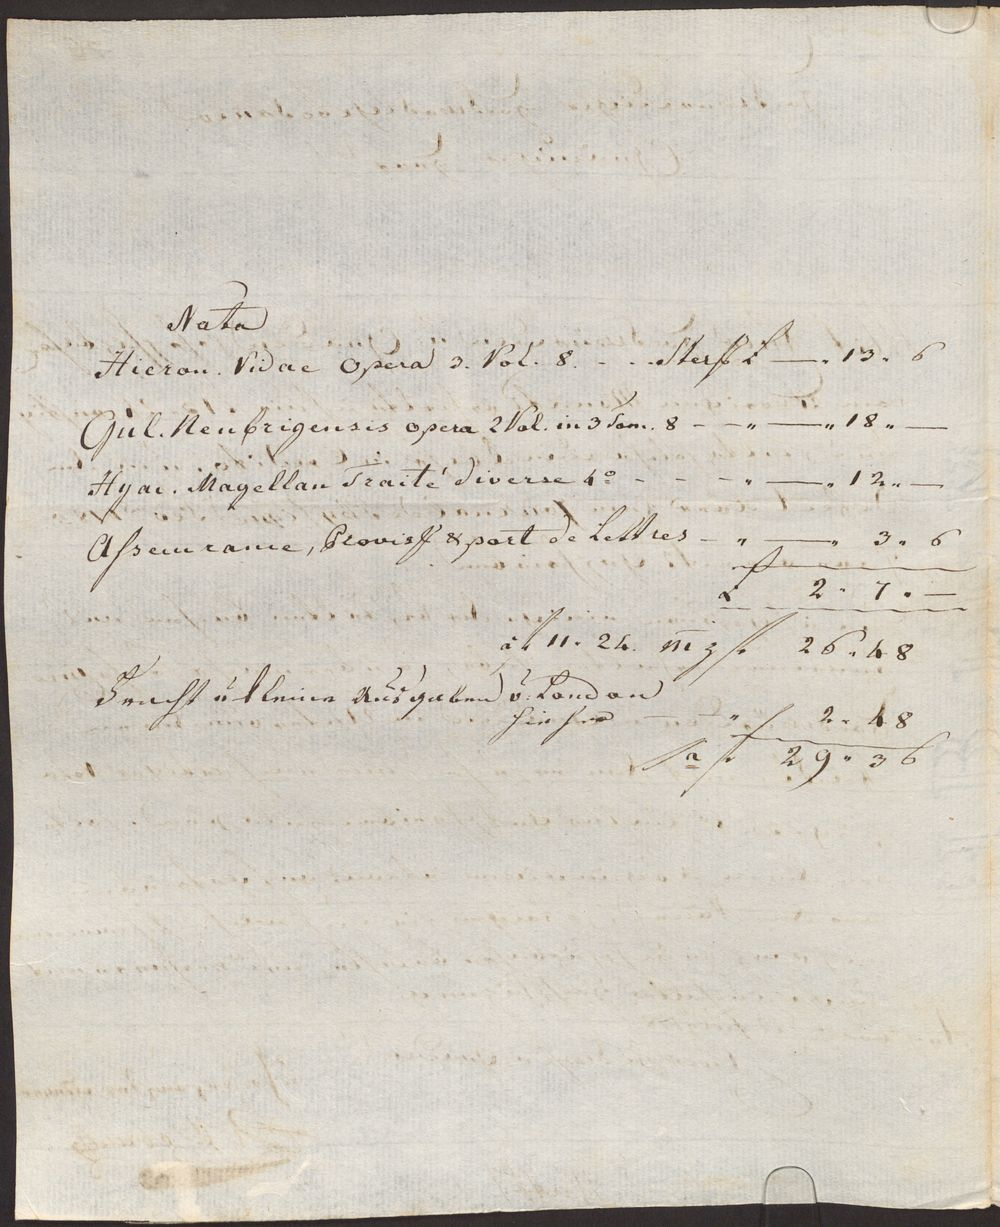 Nota
Hieron. Vidae Opera 3. Vol. 8. - - . Sterl £ — „ 13 „ 6
Gul. Neubrigensis opera 2 Vol. in 3 Tom. 8 - - „ — „ 18 „ —
Hyac. Magellan Traité diverse 4º - - - „ — „ 12 „ —
Assecurance, Provis. & port de Lettres - „ — „ 3 „ 6
£ 2 „ 7 „ —
à f 11 „ 24. f 26 „ 48
Fracht u kleine Ausgaben v. London
hieher — - „ 2 „ 48
f 29 „ 36